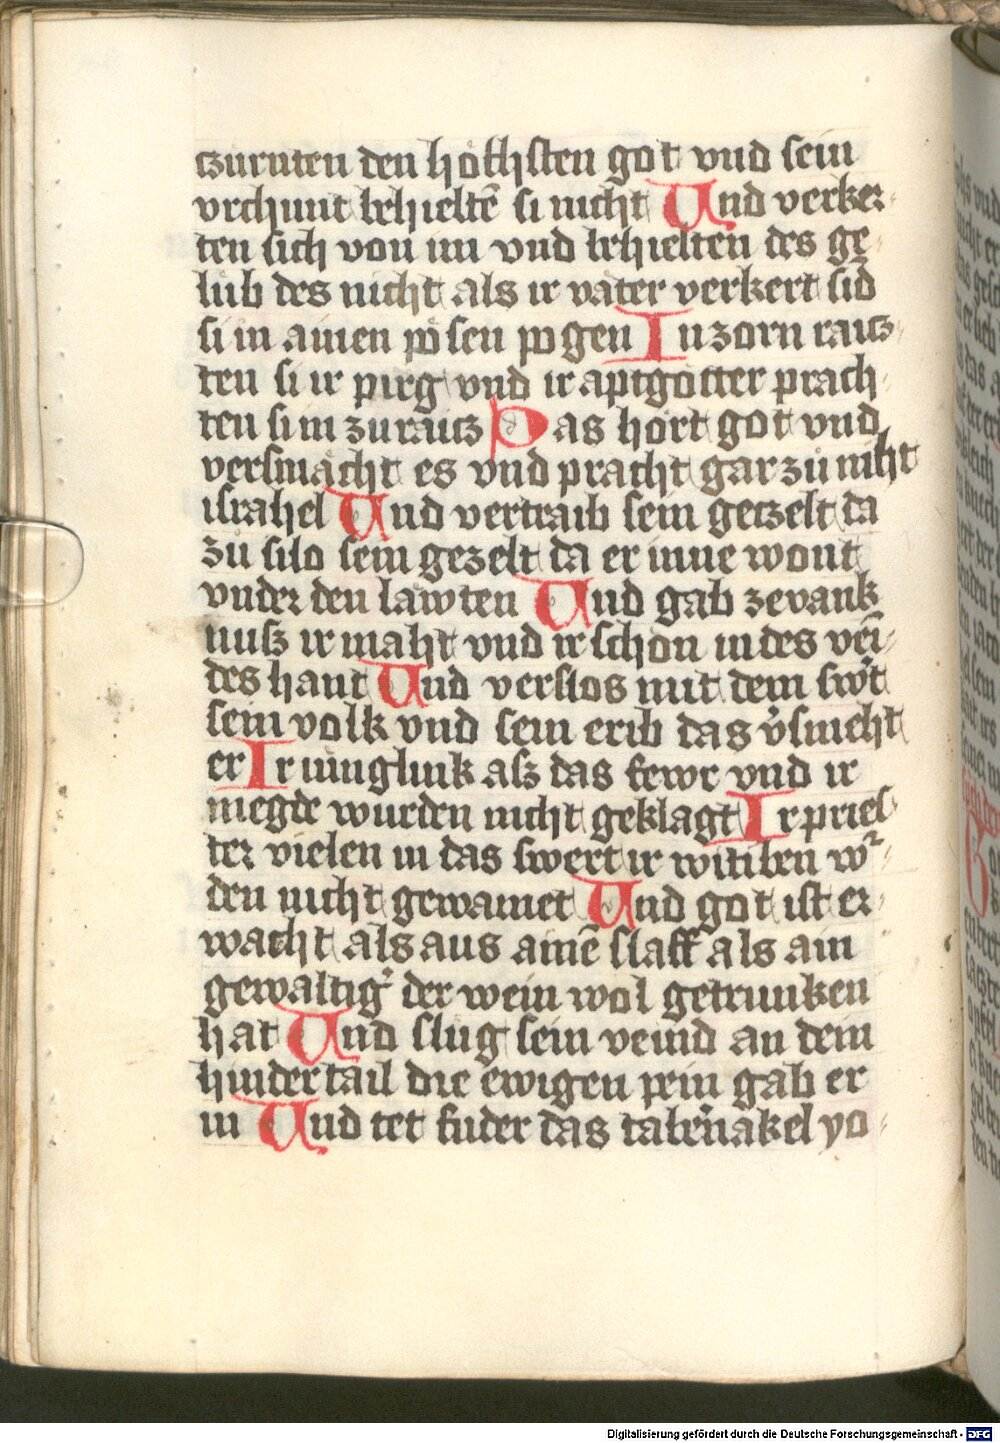 czurnten den höchsten got vnd sein
vrchunt behieltē si nicht Und verker⸗
ten sich von im vnd behielten des ge⸗
lüb des nicht als ir väter verkert sīd
si in ainen pösen pogen In zorn raicz⸗
ten si ir pirg vnd ir aptgötter prach⸗
ten si in zu räicz Das hört got vnd
versmächt es vnd pracht gar zů niht
israhel Und vertraib sein geczelt da
zů silo sein gezelt da er inne wont
vnder den läwten Und gab zevank
nusz ir maht vnd ir schon in des vei⸗
des hant Und verslos mit dem swert
sein volk vnd sein erib das v̓smeht
er Ir iungling asz das fewr vnd ir
megde wurden nicht geklagt Ir pries⸗
ter vielen in das swert ir witiben wr⸗
den nicht gewainet Und got ist er⸗
wacht als aus ainē slaff als ain
gewaltig̓ der wein wol getrunken
hat Und slug sein veind an dem
hindertail die ewigen pein gab er
in Und tet fuder das tabernakel yo⸗
Digitalisierung gefördert durch die Deutsche Forschungsgemeinschaft - DFG